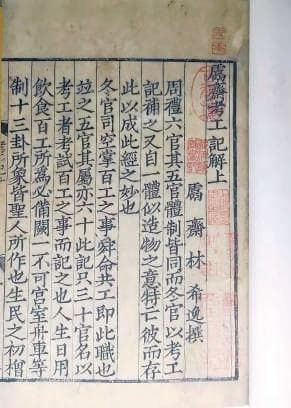 鬳齋考工記解上
鬳齋林希逸撰
周禮六官其五官體制皆同而冬官以考工
記補之又自一體似造物之意特亡彼而存
此以成此經之妙也
冬官司空掌百工之事舜命共工即此職也
竝之五官其屬亦六十此記只三十官名以
考工者考試百工之事而記之也人生日用
飲食百工所為必備闕一不可宫室舟車等
制十三卦所象皆聖人所作也生民之初橧